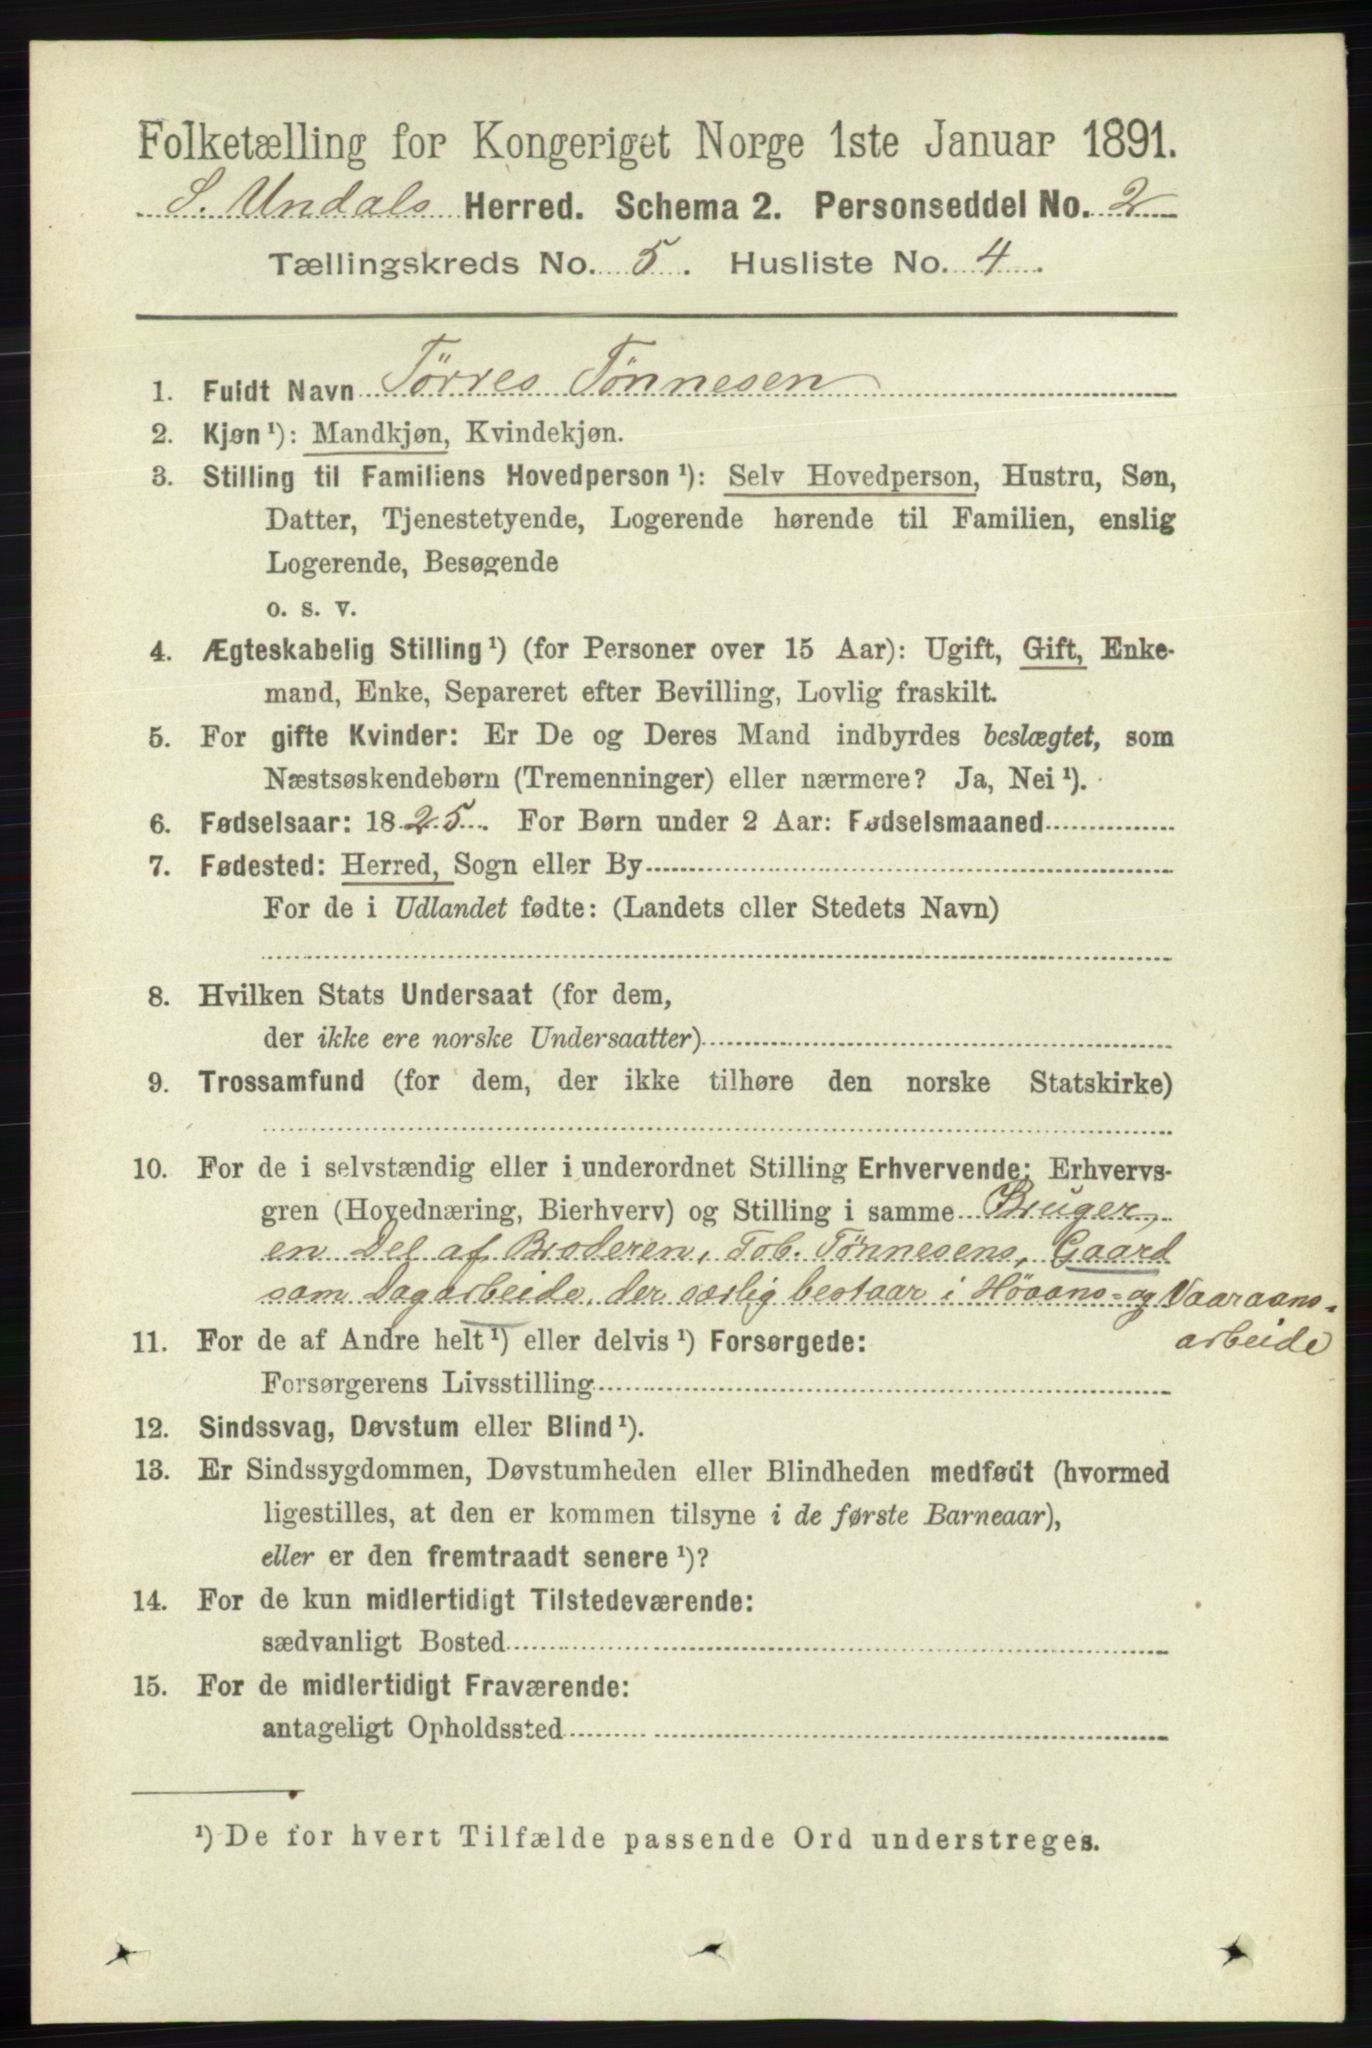 Folketælling for Kongeriget Norge 1ste Januar 1891.
S. Undals Herred. Schema 2. Personseddel No. 2
Tællingskreds No. 5. Husliste No. 4.
1. Fuldt Navn Tørres Tønnesen
2. Kjøn ¹): Mandkjøn, Kvindekjøn.
3. Stilling til Familiens Hovedperson ¹): Selv Hovedperson, Hustru, Søn,
Datter, Tjenestetyende, Logerende hørende til Familien, enslig
Logerende, Besøgende
o. s. v.
4. Ægteskabelig Stilling ¹) (for Personer over 15 Aar): Ugift, Gift, Enke-
mand, Enke, Separeret efter Bevilling, Lovlig fraskilt.
5. For gifte Kvinder: Er De og Deres Mand indbyrdes beslægtet, som
Næstsøskendebørn (Tremenninger) eller nærmere? Ja, Nei ¹).
6. Fødselsaar: 1825. For Børn under 2 Aar: Fødselsmaaned
7. Fødested: Herred, Sogn eller By
For de i Udlandet fødte: (Landets eller Stedets Navn)
8. Hvilken Stats Undersaat (for dem,
der ikke ere norske Undersaatter)
9. Trossamfund (for dem, der ikke tilhøre den norske Statskirke)
10. For de i selvstændig eller i underordnet Stilling Erhvervende: Erhvervs-
gren (Hovednæring, Bierhverv) og Stilling i samme Bruger,
en Del af Broderen, Tob. Tønnesens, Gaard
som Dagarbeide, der særlig bestaar i Høaans- og Vaaraans-
arbeide
11. For de af Andre helt ¹) eller delvis ¹) Forsørgede:
Forsørgerens Livsstilling
12. Sindssvag, Døvstum eller Blind ¹).
13. Er Sindssygdommen, Døvstumheden eller Blindheden medfødt (hvormed
ligestilles, at den er kommen tilsyne i de første Barneaar),
eller er den fremtraadt senere ¹)?
14. For de kun midlertidigt Tilstedeværende:
sædvanligt Bosted
15. For de midlertidigt Fraværende:
antageligt Opholdssted
¹) De for hvert Tilfælde passende Ord understreges.